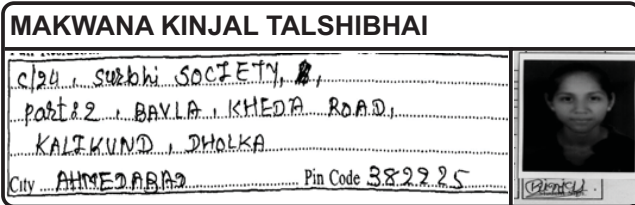 MAKWANA KINJAL TALSHIBHAI
C/24, Surbhi SOCIETY,
Part:2, BAVLA, KHEDA ROAD,
KALIKUND, DHOLKA
City AHMEDABAD Pin Code 382225